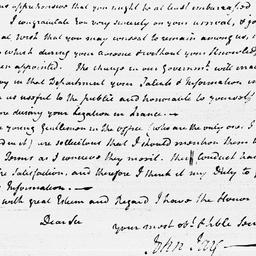 apprehensions that you might be at least embarrassed
I congratulate you very sincerely on your arrival, & jo
al wish that you may consent to remain among us, i
which during your absence & without your Knowledge
en appointed. The change in our Governmt. will ma
ry in that Department your Talents & Information
as useful to the public and honorable to yourself
ore during your Legation in France.—
young Gentlemen in the office (who are the only ones I
duct) are solicitous that I should mention them to
Terms as I conceive they merit. their Conduct has
re Satisfaction, and therefore I think it my Duty to g
Information.—
with great Esteem and Regard I have the Honor
Dear Sir
your most obt. & hble Ser
John Jay—